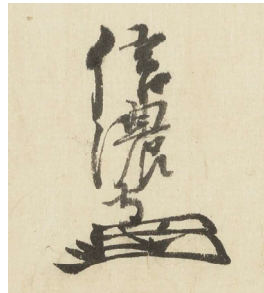 信濃守